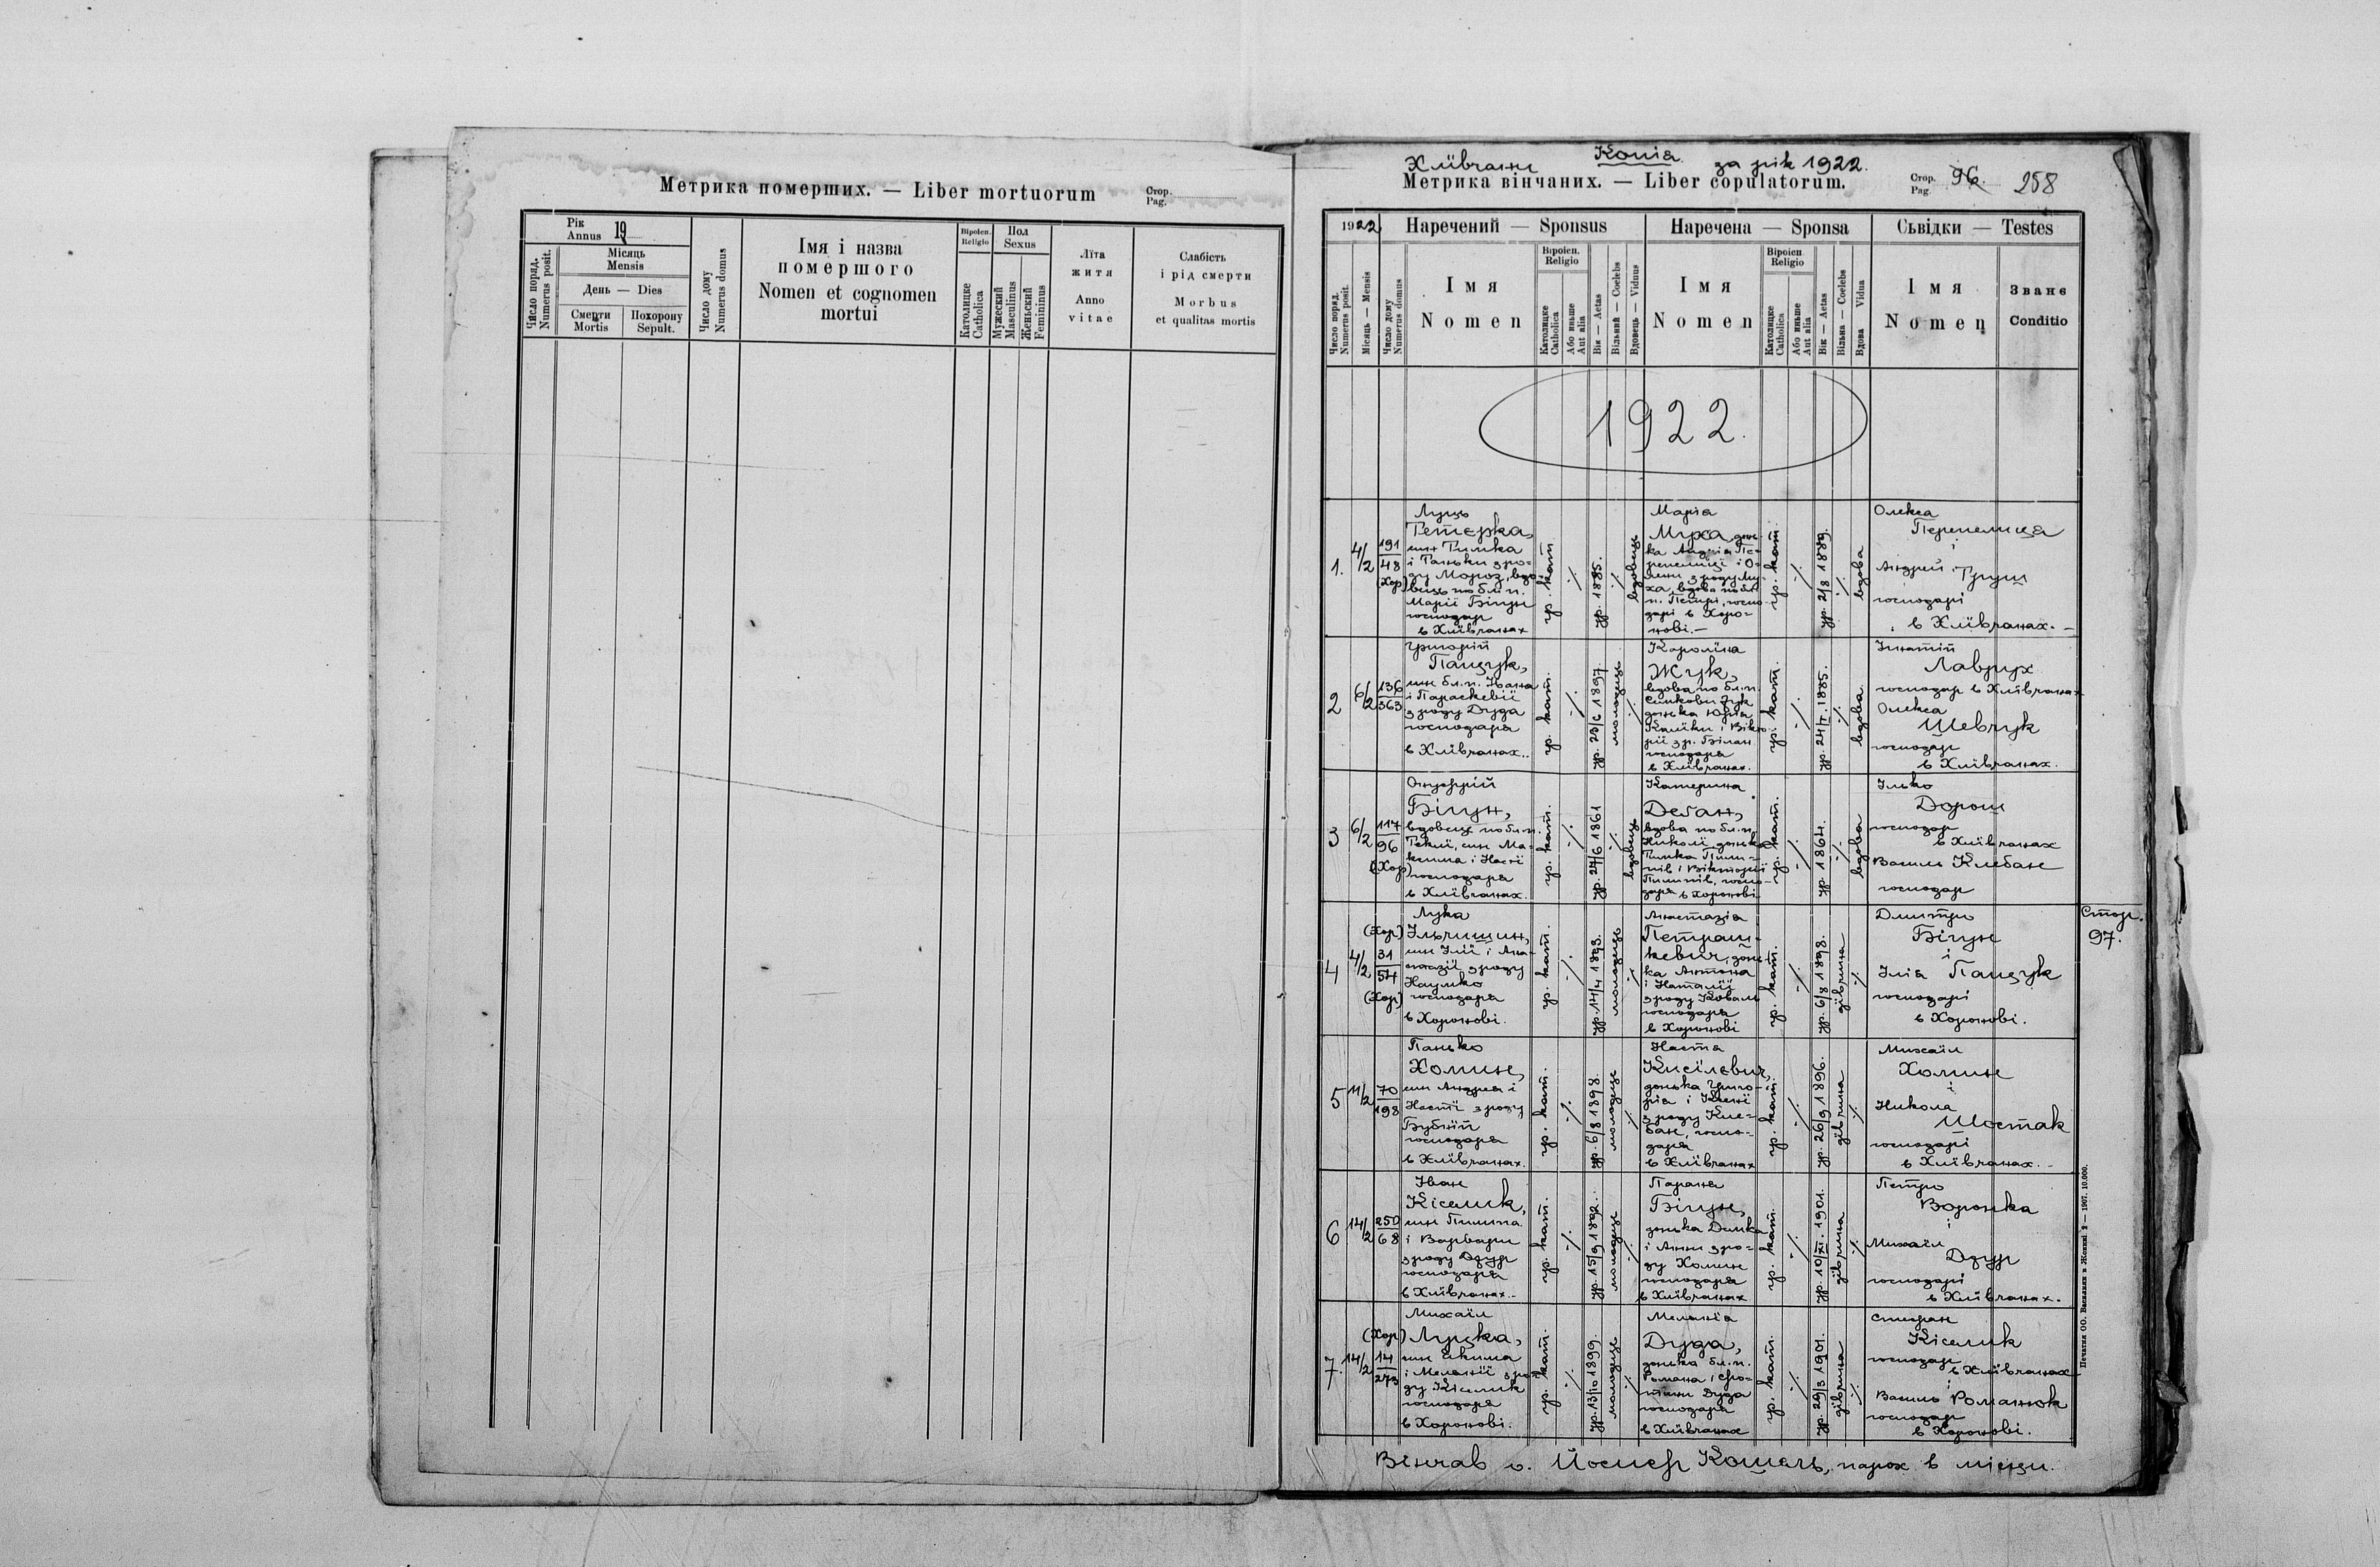 Метрика померших. — Liber mortuorum
Стор.
Pag.
Рік
Annus 19
Число поряд.
Numerus posit.
Місяць
Mensis
День — Dies
Смерти
Mortis
Похорону
Sepult.
Число дому
Numerus domus
Імя і назва
помершого
Nomen et cognomen
mortui
Віроісп.
Religio
Католицке
Catholica
Пол
Sexus
Мужеский
Masculinus
Женьский
Femininus
Лїта
житя
Anno
vitae
Слабість
і рід смерти
Morbus
et qualitas mortis
Хлївчани Копія за рік 1922.
Метрика вінчаних. — Liber copulatorum.
Стор.
Pag. 96. 258
1922
Наречений — Sponsus
Наречена — Sponsa
Сьвідки — Testes
Число поряд.
Numerus posit.
Місяць — Mensis
Число дому
Numerus domus
Імя
Nomen
Віроісп.
Religio
Католицке
Catholica
Або иньше
Aut alia
Вік — Aetas
Вільний — Coelebs
Вдовець — Viduus
Імя
Nomen
Віроісп.
Religio
Католицке
Catholica
Або иньше
Aut alia
Вік — Aetas
Вільна — Coelebs
Вдова Vidua
Імя
Nomen
Званє
Conditio
1922.
1.
4/2
191
48
(Хор)
Луць
Тетєрка,
син Тимка
і Таньки з ро-
ду Мороз, вдо-
вець по бл. п.
Марії Бігун
господар
в Хлївчанах
гр. кат
ур. 1885.
вдовець
Марія
Муха, донь-
ка Андрія Пе-
репелиці і О-
лени з роду Му-
ха, вдова по бл.
п. Петрі, госпо-
дарі в Хоро-
нові. —
гр. кат.
ур. 2/8 1889.
вдова
Олекса
Перепелиця
і
Андрей Грущ
господарі
в Хлївчанах. —
2
6/2
136
363
Григорій
Панчук,
син бл. п. Івана
і Параскевії
з роду Дуда
господаря
в Хлївчанах.
гр. кат.
ур. 23/6 1897
молодець
Кароліна
Жук,
вдова по бл. п.
Сенькови Жук
донька Юрія
і Вікто-
рії з р. Білан
господаря
в Хлївчанах.
гр. кат.
ур. 24/I. 1885.
вдова
Ігнатій
Лаврух
господар в Хлївчанах
Олекса
Шевчук
господар
в Хлївчанах.
3
6/2
117
96
(Хор)
Онуфрій
Бігун,
вдовець по бл. п.
Теклї, син Ма-
ксима і Настї
господаря
в Хлївчанах.
гр. кат.
ур. 24/6 1861
вдовець
Катерина
Дебан,
вдова по бл. п.
Николї, донька
Тимка Пили-
пів і Вікторії
Пилипів, госпо-
даря в Хоронові
гр. кат.
ур. 1864.
вдова
Ілько
Дорош
господар
в Хлївчанах
Василь Клебан
господар
4
4/2
(Хор)
31
54
(Хор)
Лука
Ільчишин,
син Ілїї і Ана-
стазії з роду
Наумко
господаря
в Хоронові.
гр. кат.
ур. 14/4 1893.
молодець
Анастазія
Петраш-
кевич, донь-
ка Антона
і Наталїї
з роду Коваль
господаря
в Хоронові
гр. кат.
ур. 6/8 1898.
дївчина
Дмитро
Бігун
і
Ілія Панчук
господарі
в Хоронові.
Стор.
97.
5
11/2
70
198
Панько
Хомин,
син Андрея і
Настї з роду
Бубній
господаря
в Хлївчанах.
гр. кат.
ур. 6/8 1898.
молодець
Наста
Кисїлевич,
донька Григо-
рія і Ксенї
з роду Кле-
бан, госпо-
даря
в Хлївчанах
гр. кат.
ур. 26/9 1896.
дївчина
Михаіл
Хомин
і
Никола
Шостак
господарі
в Хлївчанах. —
6
14/2
250
68
Іван
Кіселик,
син Пилипа
і Варвари
з роду Дзур
господаря
в Хлївчанах. —
гр. кат.
ур. 15/9 1892.
молодець
Параня
Бігун,
донька Димка
і Анни з ро-
ду Хомин
господаря
в Хлївчанах
гр. кат.
ур. 10/XI. 1901.
дївчина
Петро
Воронка
і
Михаіл
Дзур
господарі
в Хлївчанах.
7.
14/2
(Хор)
14
273
Михаіл
Луцька,
син Якима
і Меланїї з ро-
ду Кіселик
господаря
в Хоронові.
гр. кат.
ур. 13/10 1899.
молодець
Меланія
Дуда,
донька бл. п.
Романа і Яро-
тини Дуда
господаря
в Хлївчанах
гр. кат.
ур. 29/3 1901.
дївчина
Стефан
Кіселик
господар
в Хлївчанах
і
Василь Романюк
господар
в Хоронові.
Печатня ОО. Василиян в Жовкві 2 — 1907. 10.000.
Вінчав о. Йосиф Кошель, парох в місци.